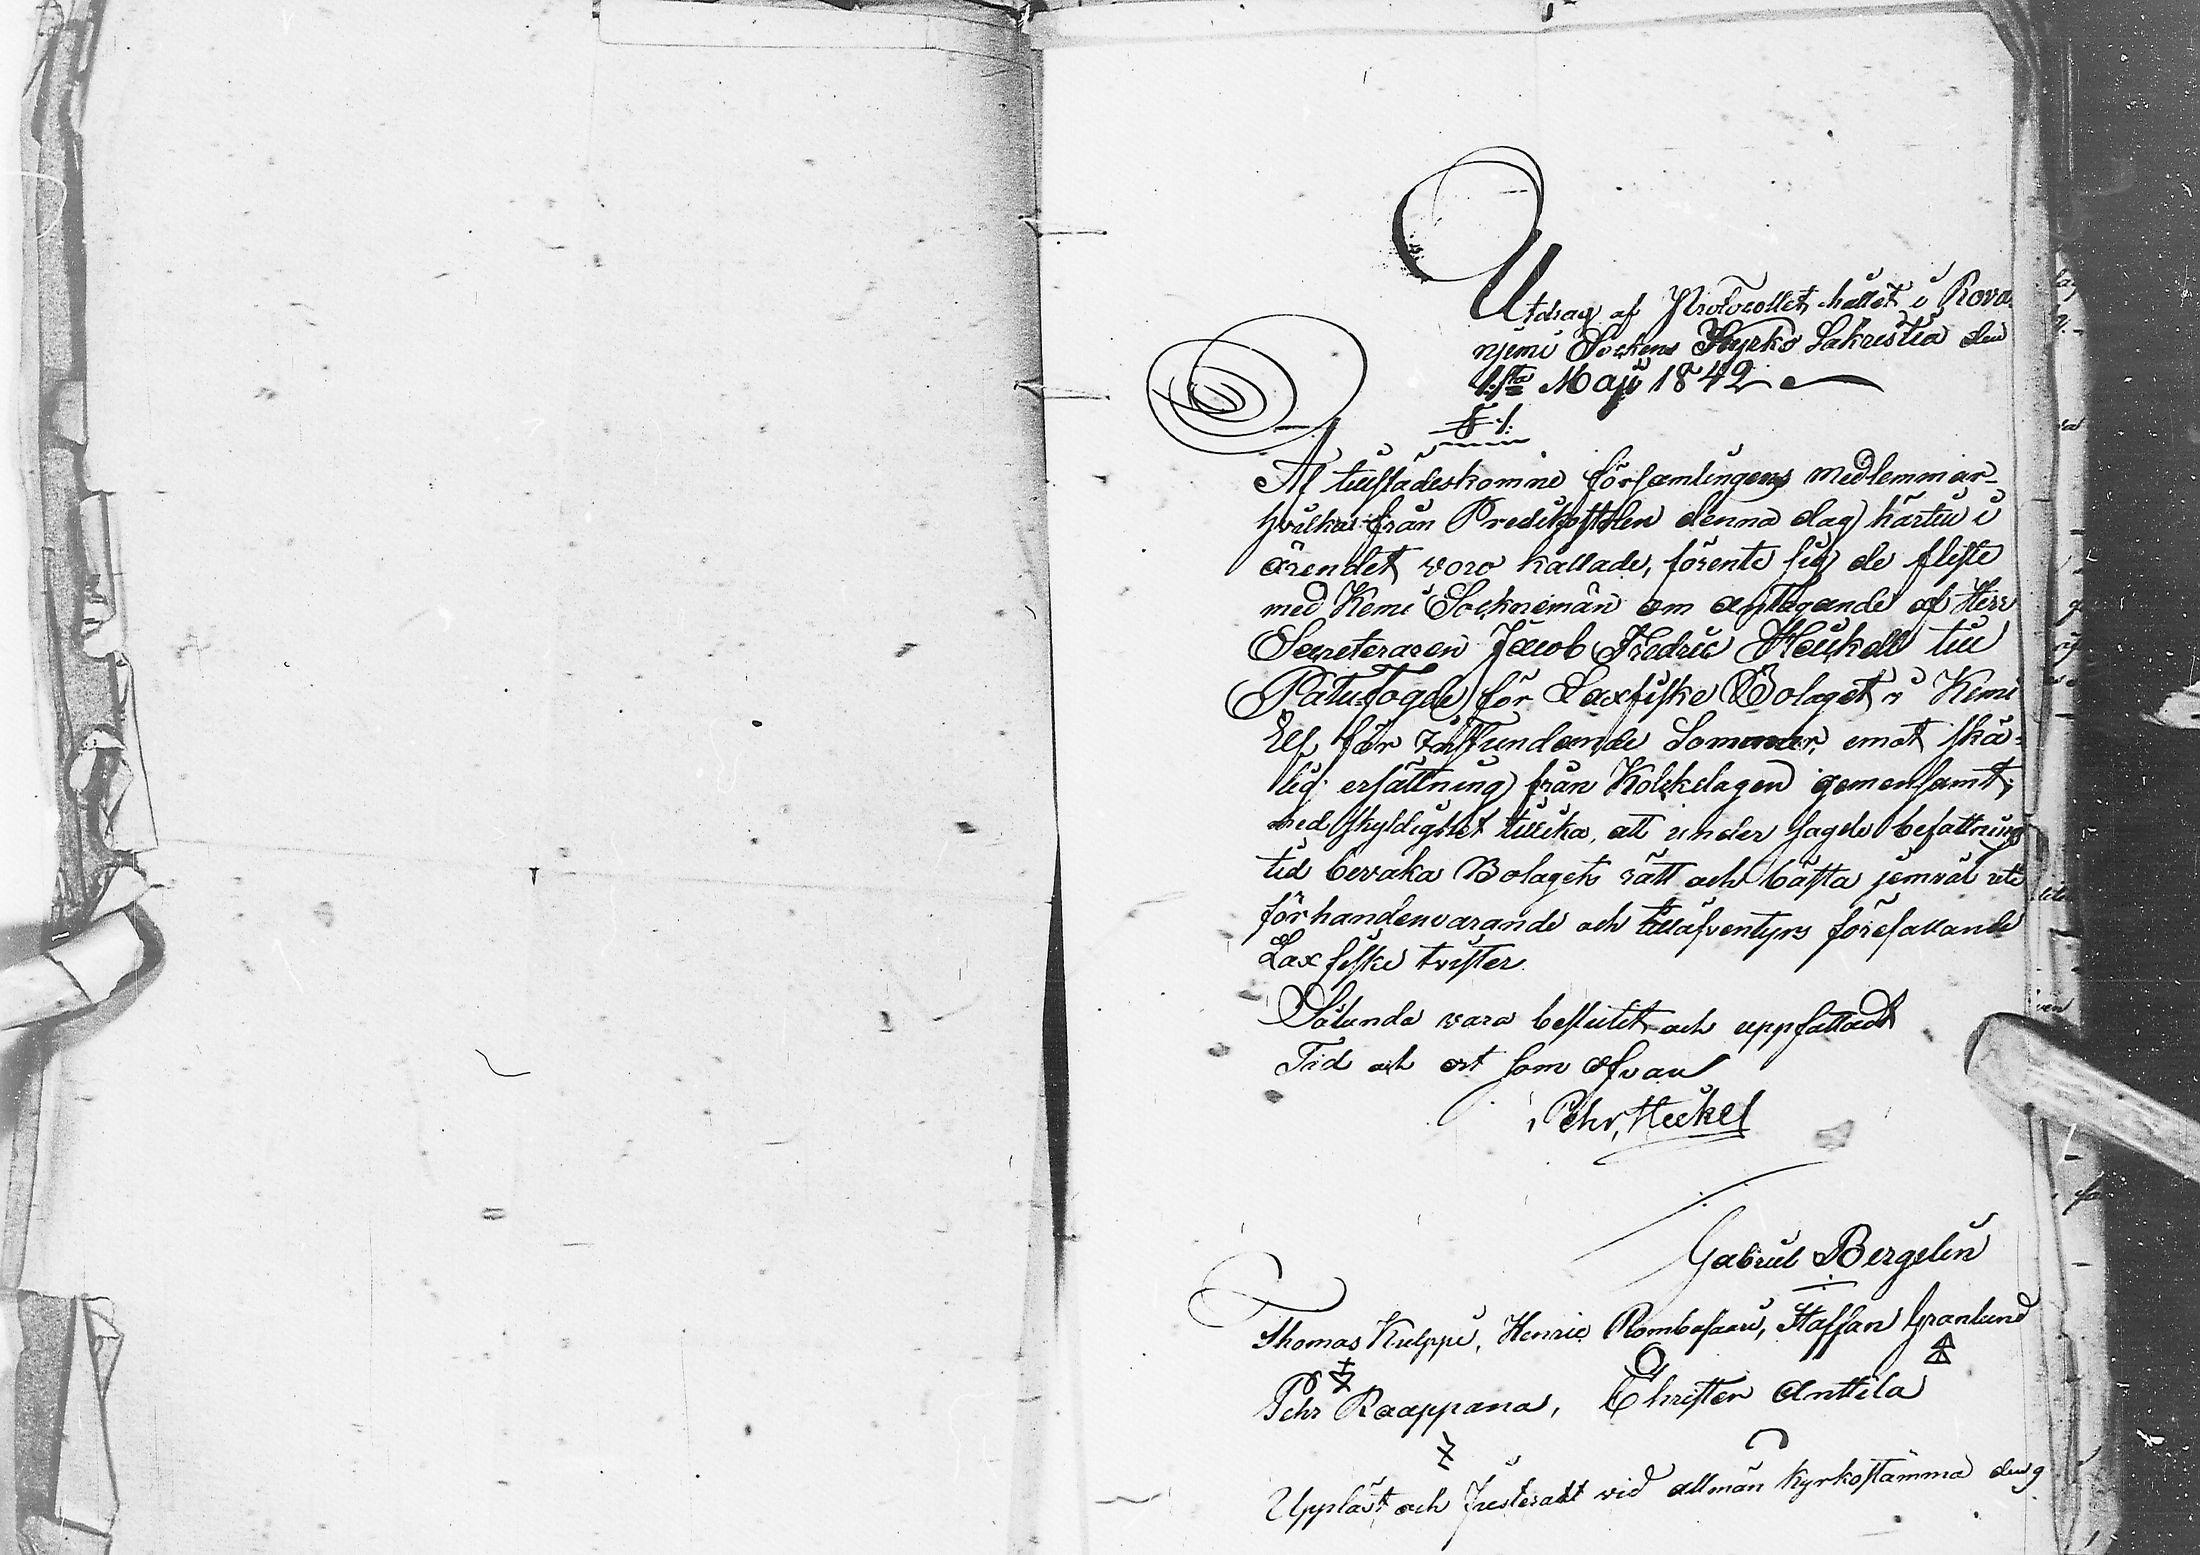 Utdrag af Protocollet hållet i Rova
njemi Sockens Kyrko Sakristia den
1:sta Maji 1842
§ 1.
Af tillstädeskomne församlingens medlemmar
hvilka från Predikostolen denna dag härtill i
ärendet voro kallade, förente sig de fleste
med Kemi Socknemän om antagande af Herr
Secreteraren Jacob Fredric Heickell till
Patufogde för Laxfiske Bolaget i Kemi
Elf för tillstundande Sommar, emot skä-
lig ersättning från Kolkelagen gemensamt,
med skyldighet tillika, att under sagde befattning
tid bevaka Bolagets rätt och bästa jemväl uti
förhandenvarande och tilläfventyrs förefallande
Lax fiske tvister.
Sålunda vara beslutit och uppfattadt
Tid och ort som ofvan
Pehr Heikel
Gabriel Bergelin
Thomas Kulppi, Henric Rombosaari, Staffan Granlund
Pehr Raappana, Christer Anttila
Uppläst och Justeradt vid allmän Kyrkostämma den 9